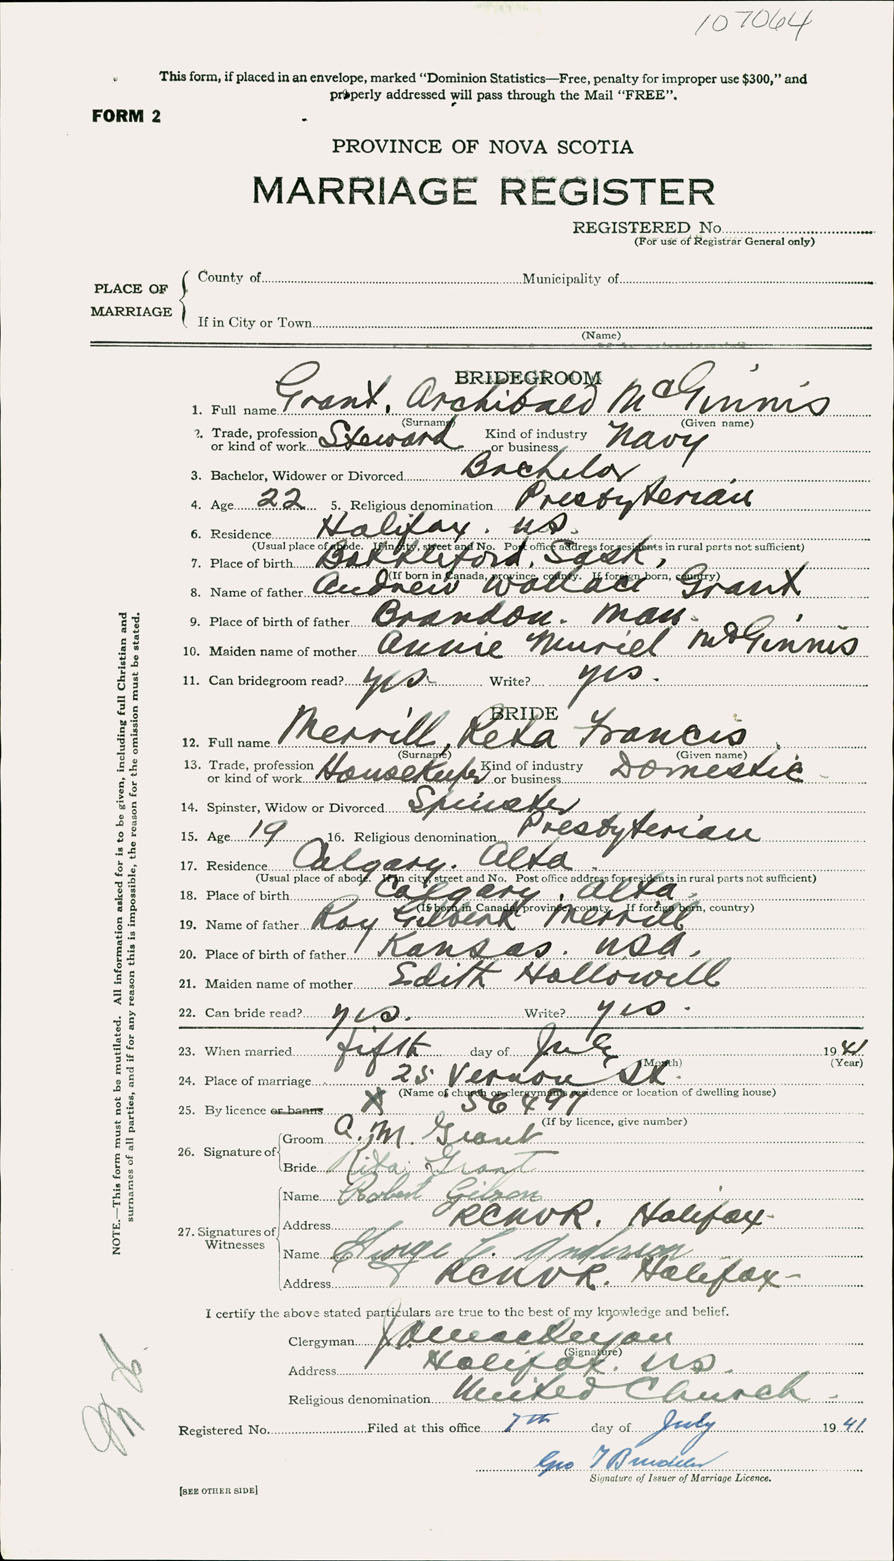 107064
This form, if placed in an envelope, marked "Dominion Statistics—Free, penalty for improper use $300," and
properly addressed will pass through the Mail "FREE".
FORM 2
PROVINCE OF NOVA SCOTIA
MARRIAGE REGISTER
REGISTERED No.
(For use of Registrar General only)
PLACE OF MARRIAGE
County of Municipality of
If in City or Town
(Name)
BRIDEGROOM
1. Full name Grant, Archibald McGinnis
(Surname) (Given name)
2. Trade, profession or kind of work Steward Kind of industry or business Navy
3. Bachelor, Widower or Divorced Bachelor
4. Age 22 5. Religious denomination Presbyterian
6. Residence Halifax. NS.
(Usual place of abode. If in city, street and No. Post office address for residents in rural parts not sufficient)
7. Place of birth Battleford, Sask,
(If born in Canada, province, county. If foreign born, country)
8. Name of father Andrew Wallace Grant
9. Place of birth of father Brandon. Man.
10. Maiden name of mother Annie Muriel McGinnis
11. Can bridegroom read? yes. Write? yes.
BRIDE
12. Full name Merrill, Reta Francis.
(Surname) (Given name)
13. Trade, profession or kind of work Housekeeper Kind of industry or business Domestic
14. Spinster, Widow or Divorced Spinster
15. Age 19 16. Religious denomination Presbyterian
17. Residence Calgary. Alta.
(Usual place of abode. If in city, street and No. Post office address for residents in rural parts not sufficient)
18. Place of birth Calgary, Alta.
(If born in Canada, province, county. If foreign born, country)
19. Name of father Roy Gilbert Merrill
20. Place of birth of father Kansas. USA.
21. Maiden name of mother Edith Hollowell
22. Can bride read? yes. Write? yes.
23. When married fifth day of July 1941
(Month) (Year)
24. Place of marriage 25 Vernon St.
(Name of church or clergyman's residence or location of dwelling house)
25. By licence or banns X 56497
(If by licence, give number)
26. Signature of
Groom A. M. Grant
Bride Rita Grant
27. Signatures of Witnesses
Name Robert Gibson
Address RCNVR. Halifax-
Name George Anderson
Address RCNVR. Halifax-
I certify the above stated particulars are true to the best of my knowledge and belief.
Clergyman
(Signature)
Address Halifax. NS.
Religious denomination United Church.
Registered No. Filed at this office 7th day of July 1941
Geo
Signature of Issuer of Marriage Licence.
[SEE OTHER SIDE]
NOTE.—This form must not be mutilated. All information asked for is to be given, including full Christian and
surnames of all parties, and if for any reason this is impossible, the reason for the omission must be stated.